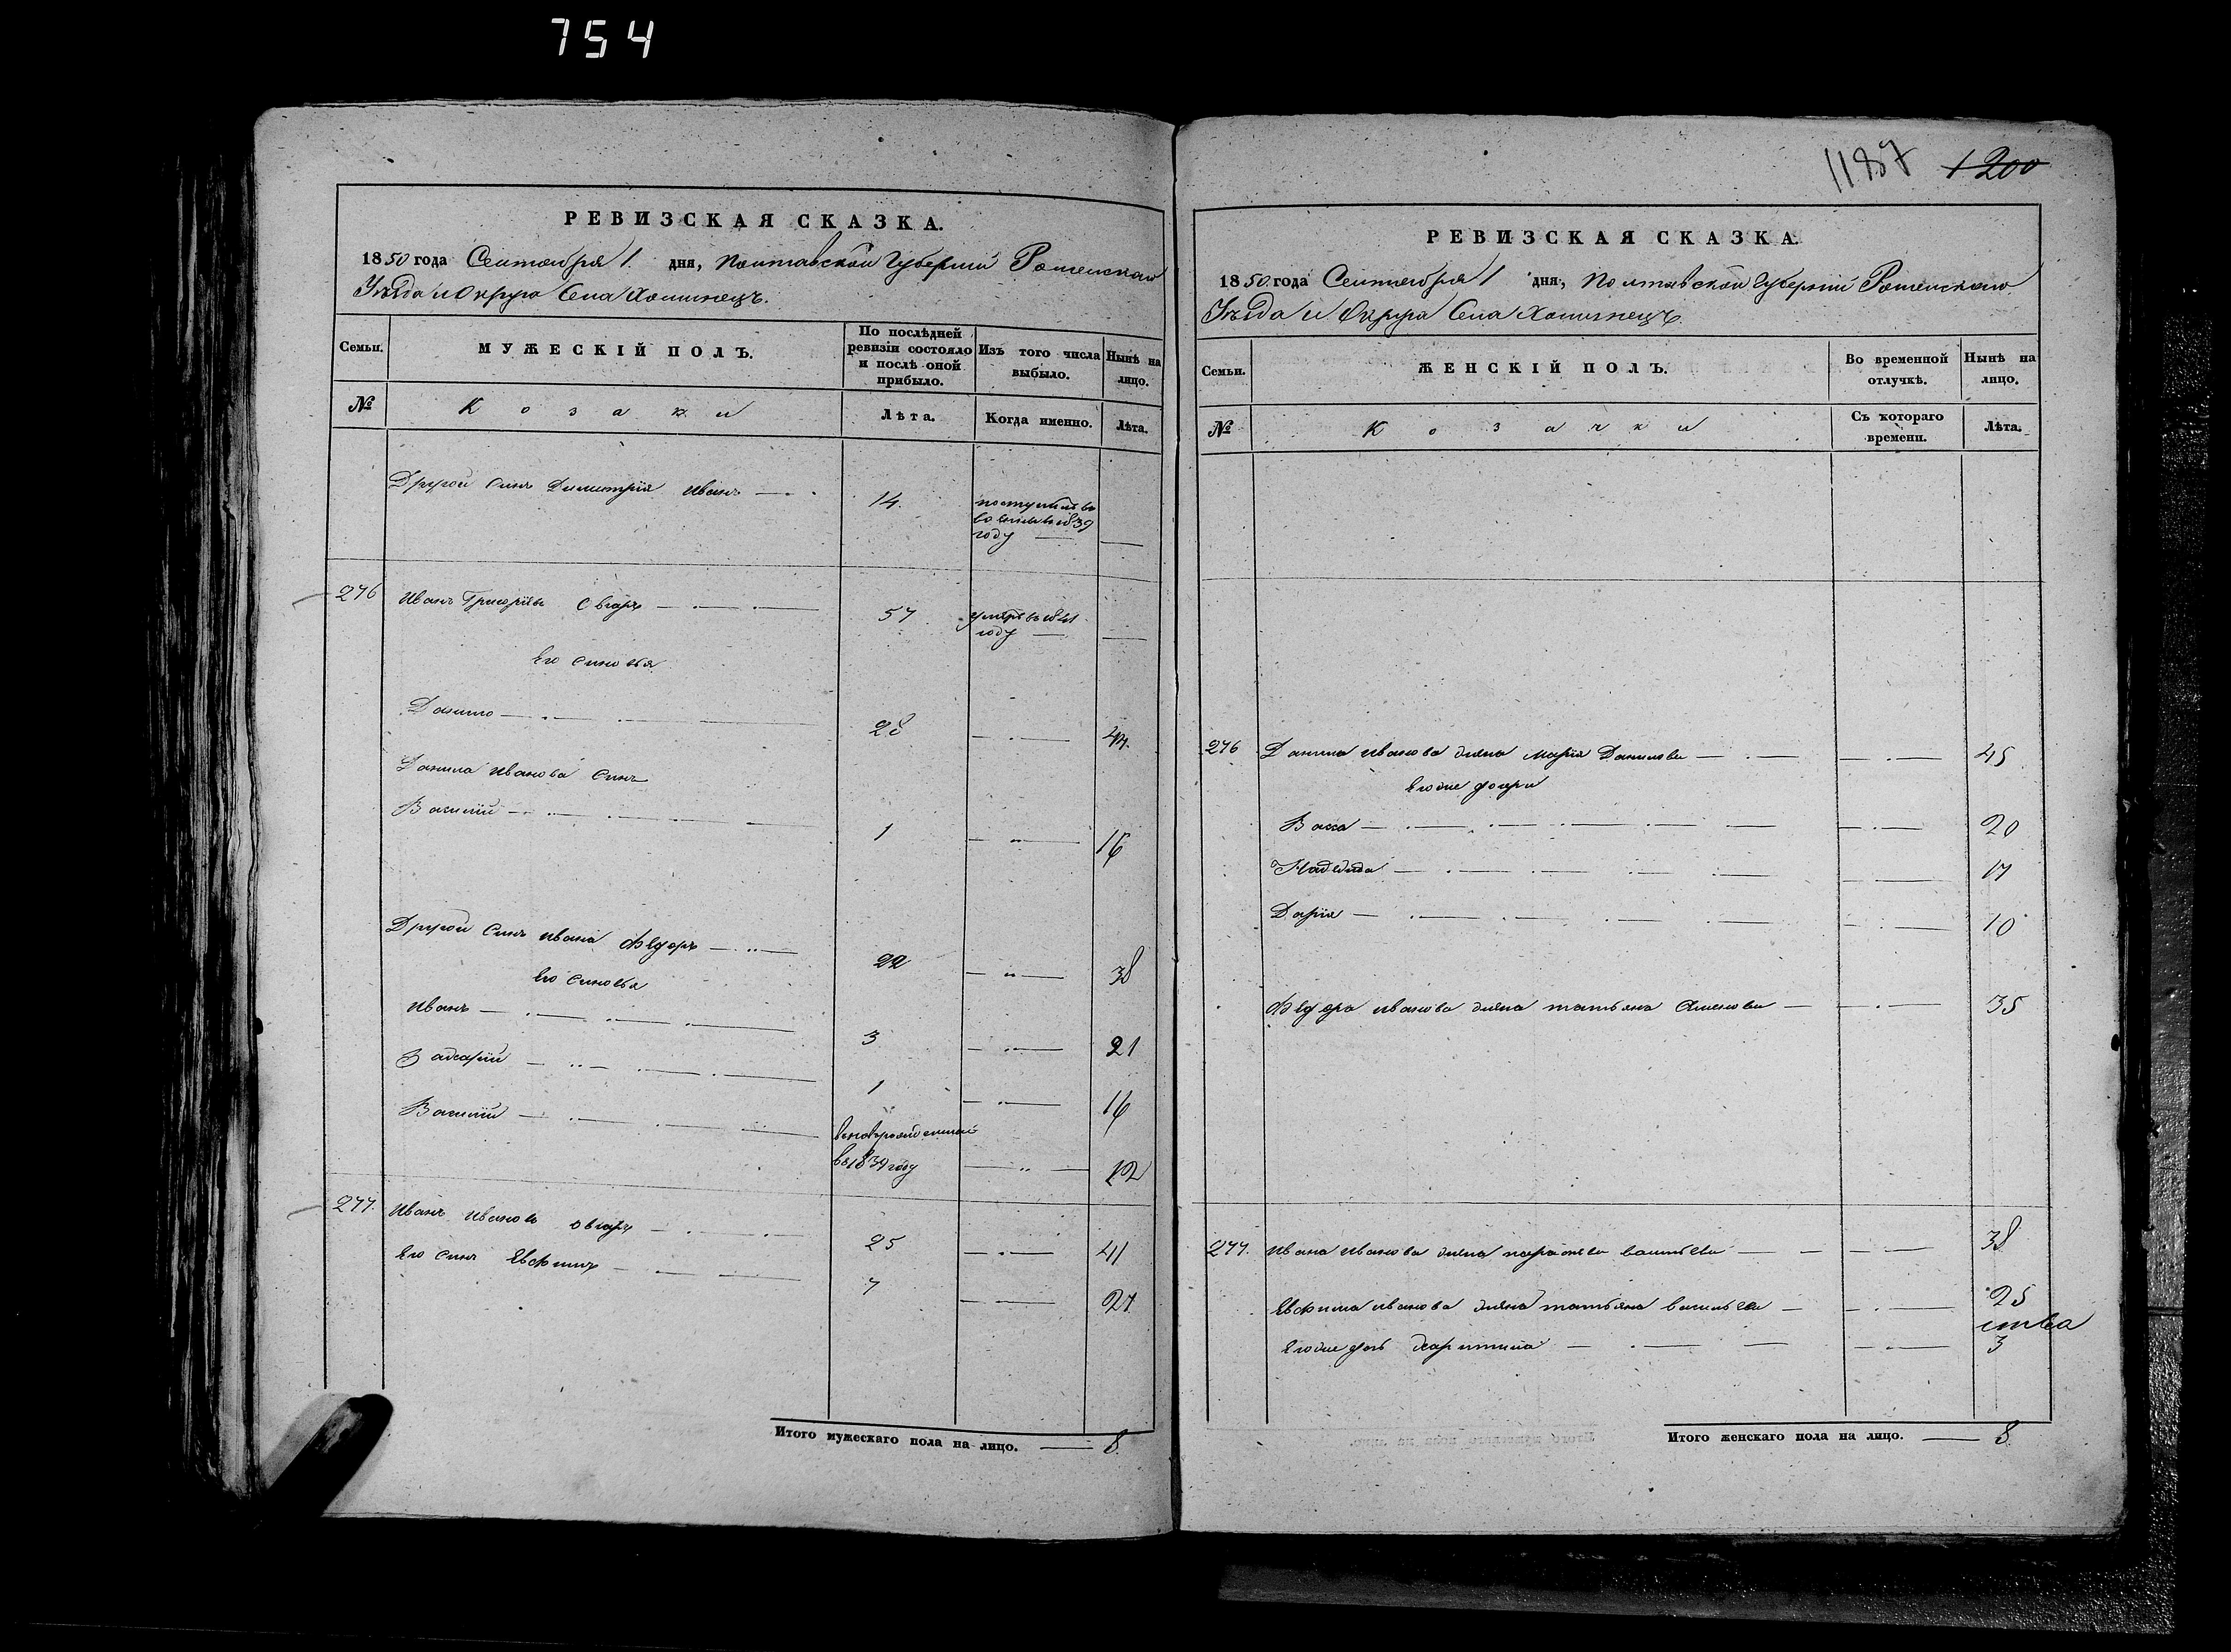 754
1187 1200
РЕВИЗСКАЯ СКАЗКА.
1850 года Сентября 1. дня, Полтавской Губернии Роменского
Уезда и Округа Села Хоминецъ.
Семьи. МУЖЕСКІЙ ПОЛЪ. По послѣдней ревизіи состояло и послѣ оной прибыло. Изъ того числа выбыло. Нынѣ на лицо.
№ Козаки Лѣта. Когда именно. Лѣта.
Другой Синъ Димитрія Иванъ 14. поступилъ въ
1839
году
276 Иванъ Григорьевъ Овчаръ 57 умеръ въ 1841
году
Его синовья
Данило 28 44.
Данила Иванова Синъ
Василій 1 16
Другой Синъ Ивана Ѳедоръ 22 38
Его синовья
Иванъ 3 21
Захарій 1 16
Василій новорожденный
въ 1839 году 12
277. Иванъ Ивановъ Овчаръ 25 41
Его синъ Евфимъ 7 27
Итого мужескаго пола на лицо. 8.
РЕВИЗСКАЯ СКАЗКА.
1850 года Сентября 1 дня, Полтавской Губерніи Роменского
Уезда и Округа Села Хоминецъ.
Семьи. ЖЕНСКІЙ ПОЛЪ. Во временной отлучкѣ. Нынѣ на лицо.
№ Козачки Съ котораго времени. Лѣта.
276 Данила Иванова жена Марія Данилова 45
его же дочери
Васса 20
Надежда 17
Дарія 10
Ѳедора Иванова жена Татьяна 35
277. Ивана Иванова жена 38
Евфима Иванова жена Татьяна Васильева 25
его же дочь Харитина 3
Итого женскаго пола на лицо. 8.